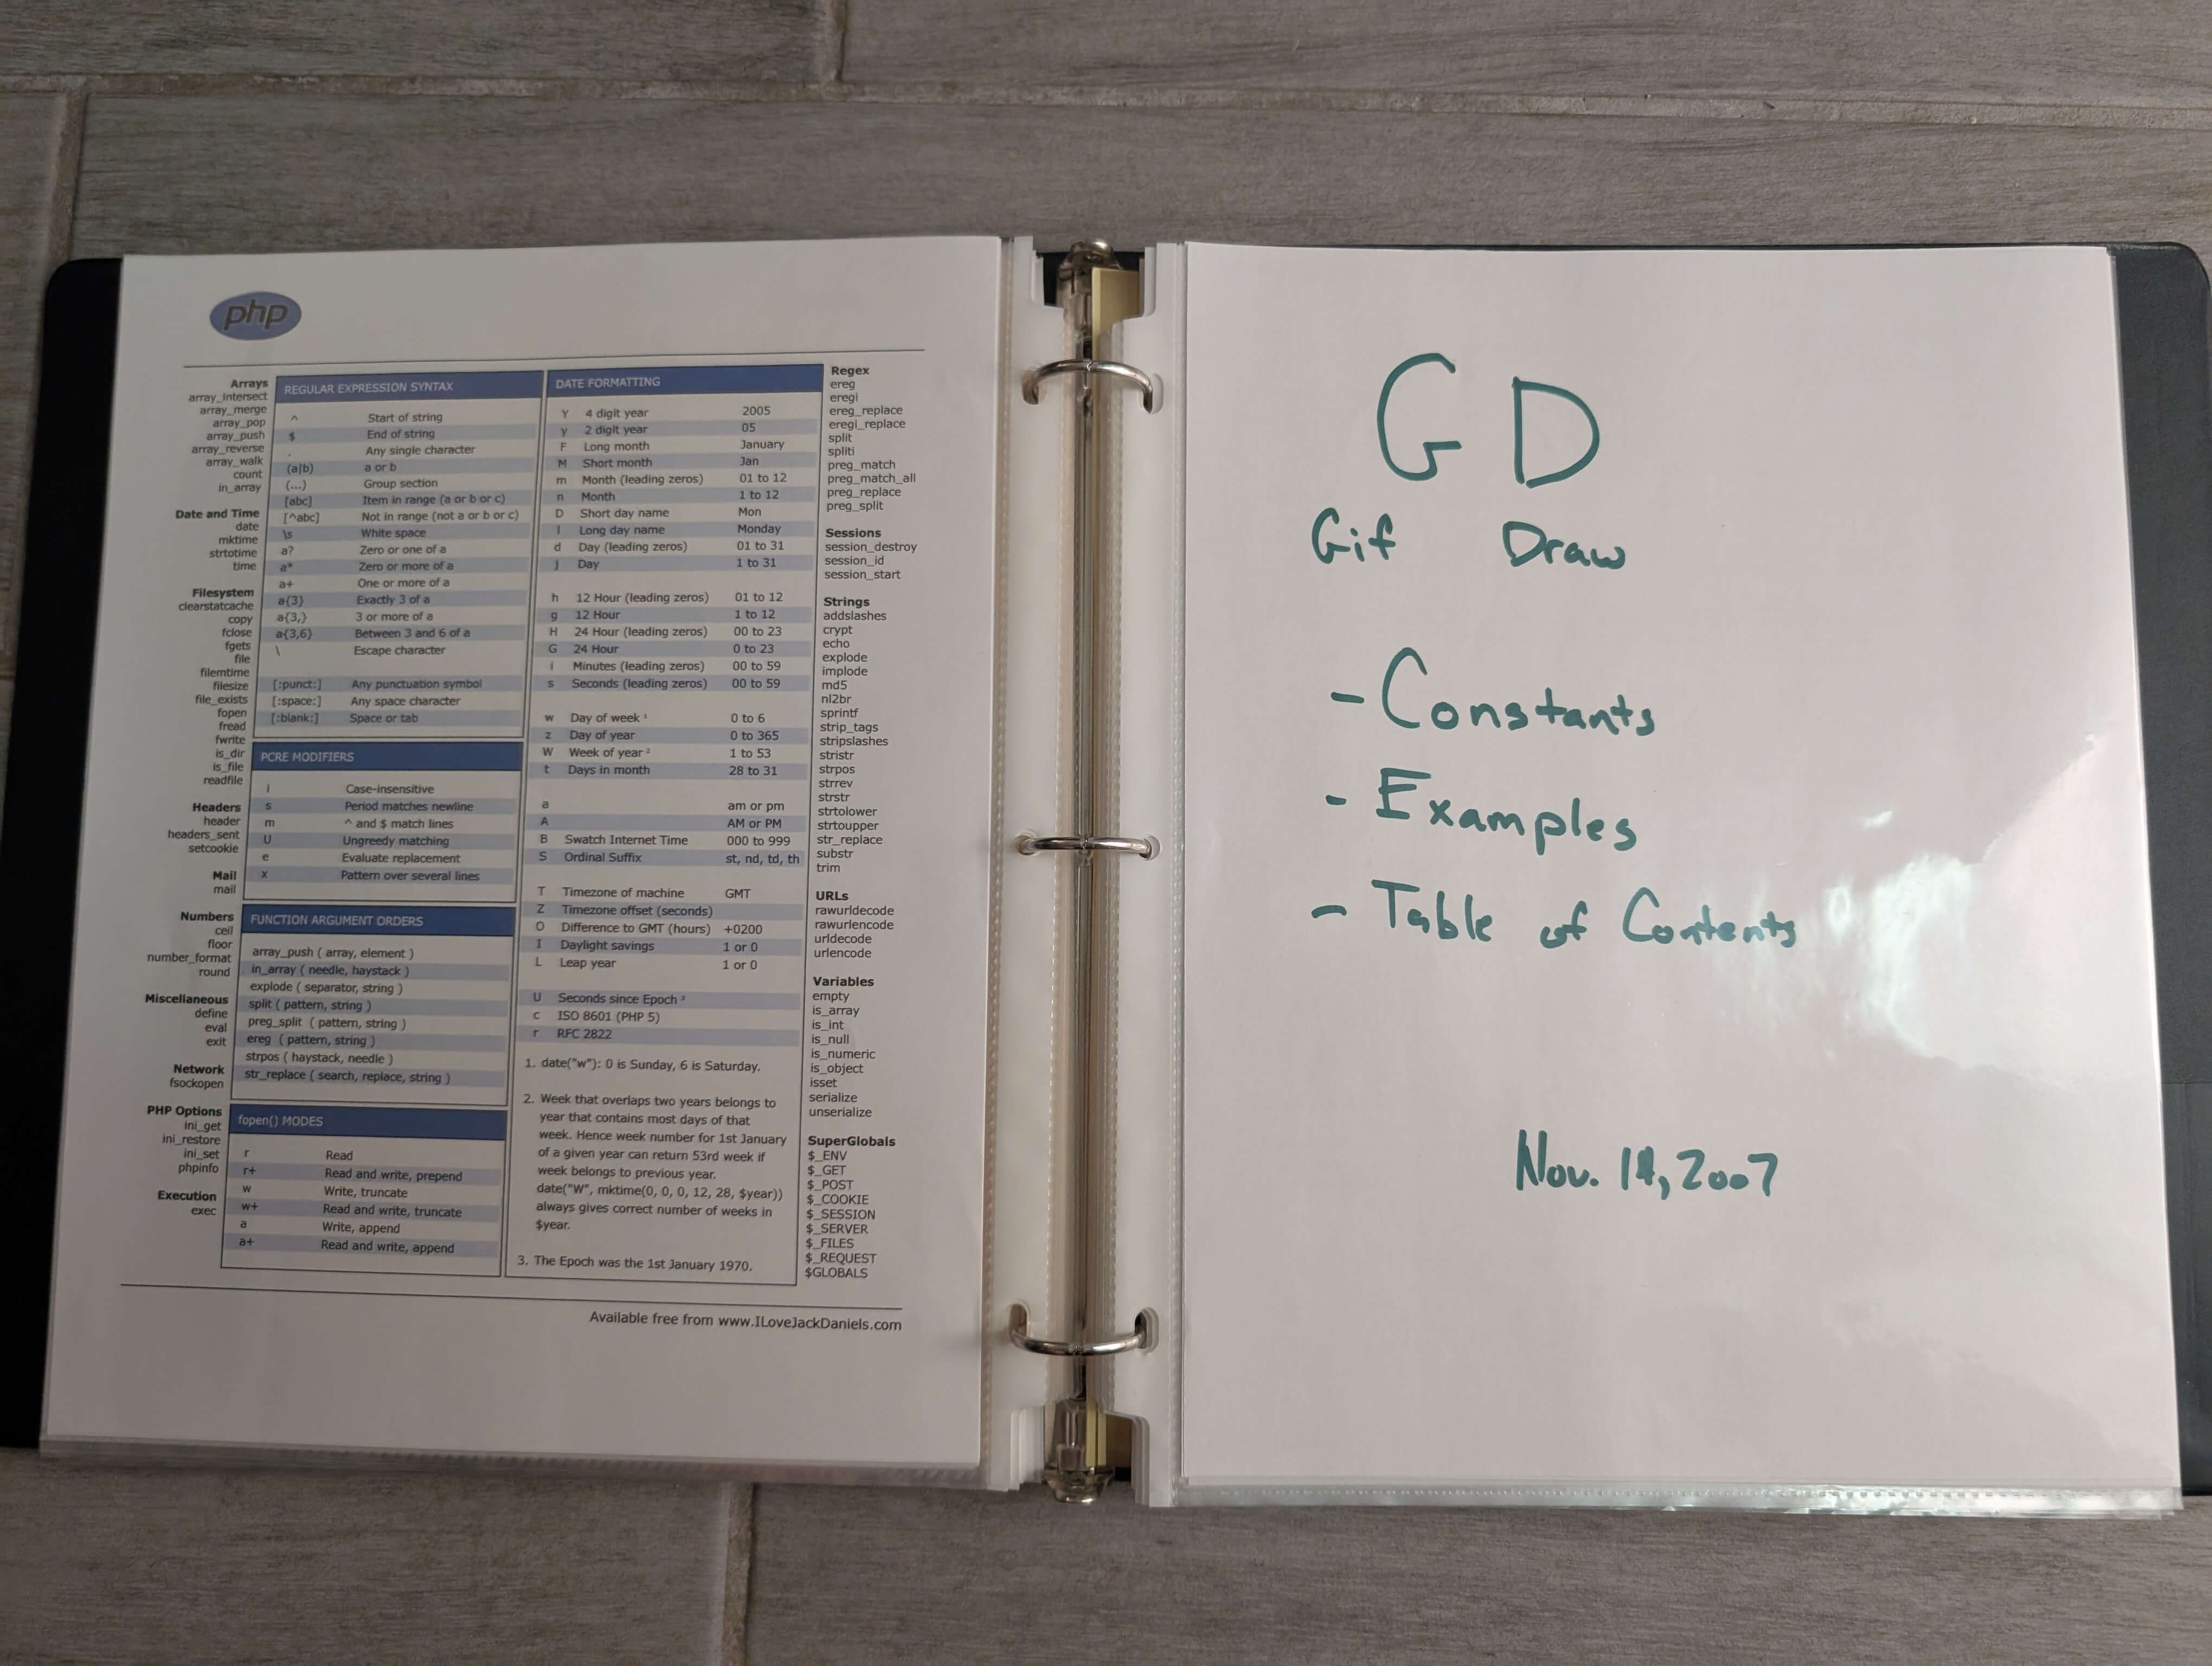 php
Arrays
array_intersect
array_merge
array_pop
array_push
array_reverse
array_walk
count
in_array
Date and Time
date
mktime
strtotime
time
Filesystem
clearstatcache
copy
fclose
fgets
file
filemtime
filesize
file_exists
fopen
fread
fwrite
is_dir
is_file
readfile
Headers
header
headers_sent
setcookie
Mail
mail
Numbers
ceil
floor
number_format
round
Miscellaneous
define
eval
exit
Network
fsockopen
PHP Options
ini_get
ini_restore
ini_set
phpinfo
Execution
exec
REGULAR EXPRESSION SYNTAX
^ Start of string
$ End of string
. Any single character
(a|b) a or b
(...) Group section
[abc] Item in range (a or b or c)
[^abc] Not in range (not a or b or c)
\s White space
a? Zero or one of a
a* Zero or more of a
a+ One or more of a
a{3} Exactly 3 of a
a{3,} 3 or more of a
a{3,6} Between 3 and 6 of a
\ Escape character
[:punct:] Any punctuation symbol
[:space:] Any space character
[:blank:] Space or tab
PCRE MODIFIERS
i Case-insensitive
s Period matches newline
m ^ and $ match lines
U Ungreedy matching
e Evaluate replacement
x Pattern over several lines
FUNCTION ARGUMENT ORDERS
array_push ( array, element )
in_array ( needle, haystack )
explode ( separator, string )
split ( pattern, string )
preg_split ( pattern, string )
ereg ( pattern, string )
strpos ( haystack, needle )
str_replace ( search, replace, string )
fopen() MODES
r Read
r+ Read and write, prepend
w Write, truncate
w+ Read and write, truncate
a Write, append
a+ Read and write, append
DATE FORMATTING
Y 4 digit year 2005
y 2 digit year 05
F Long month January
M Short month Jan
m Month (leading zeros) 01 to 12
n Month 1 to 12
D Short day name Mon
l Long day name Monday
d Day (leading zeros) 01 to 31
j Day 1 to 31
h 12 Hour (leading zeros) 01 to 12
g 12 Hour 1 to 12
H 24 Hour (leading zeros) 00 to 23
G 24 Hour 0 to 23
i Minutes (leading zeros) 00 to 59
s Seconds (leading zeros) 00 to 59
w Day of week ¹ 0 to 6
z Day of year 0 to 365
W Week of year ² 1 to 53
t Days in month 28 to 31
a am or pm
A AM or PM
B Swatch Internet Time 000 to 999
S Ordinal Suffix st, nd, td, th
T Timezone of machine GMT
Z Timezone offset (seconds)
O Difference to GMT (hours) +0200
I Daylight savings 1 or 0
L Leap year 1 or 0
U Seconds since Epoch ³
c ISO 8601 (PHP 5)
r RFC 2822
1. date("w"): 0 is Sunday, 6 is Saturday.
2. Week that overlaps two years belongs to
year that contains most days of that
week. Hence week number for 1st January
of a given year can return 53rd week if
week belongs to previous year.
date("W", mktime(0, 0, 0, 12, 28, $year))
always gives correct number of weeks in
$year.
3. The Epoch was the 1st January 1970.
Regex
ereg
eregi
ereg_replace
eregi_replace
split
spliti
preg_match
preg_match_all
preg_replace
preg_split
Sessions
session_destroy
session_id
session_start
Strings
addslashes
crypt
echo
explode
implode
md5
nl2br
sprintf
strip_tags
stripslashes
stristr
strpos
strrev
strstr
strtolower
strtoupper
str_replace
substr
trim
URLs
rawurldecode
rawurlencode
urldecode
urlencode
Variables
empty
is_array
is_int
is_null
is_numeric
is_object
isset
serialize
unserialize
SuperGlobals
$_ENV
$_GET
$_POST
$_COOKIE
$_SESSION
$_SERVER
$_FILES
$_REQUEST
$GLOBALS
Available free from www.ILoveJackDaniels.com
GD
Gif Draw
- Constants
- Examples
- Table of Contents
Nov. 14, 2007